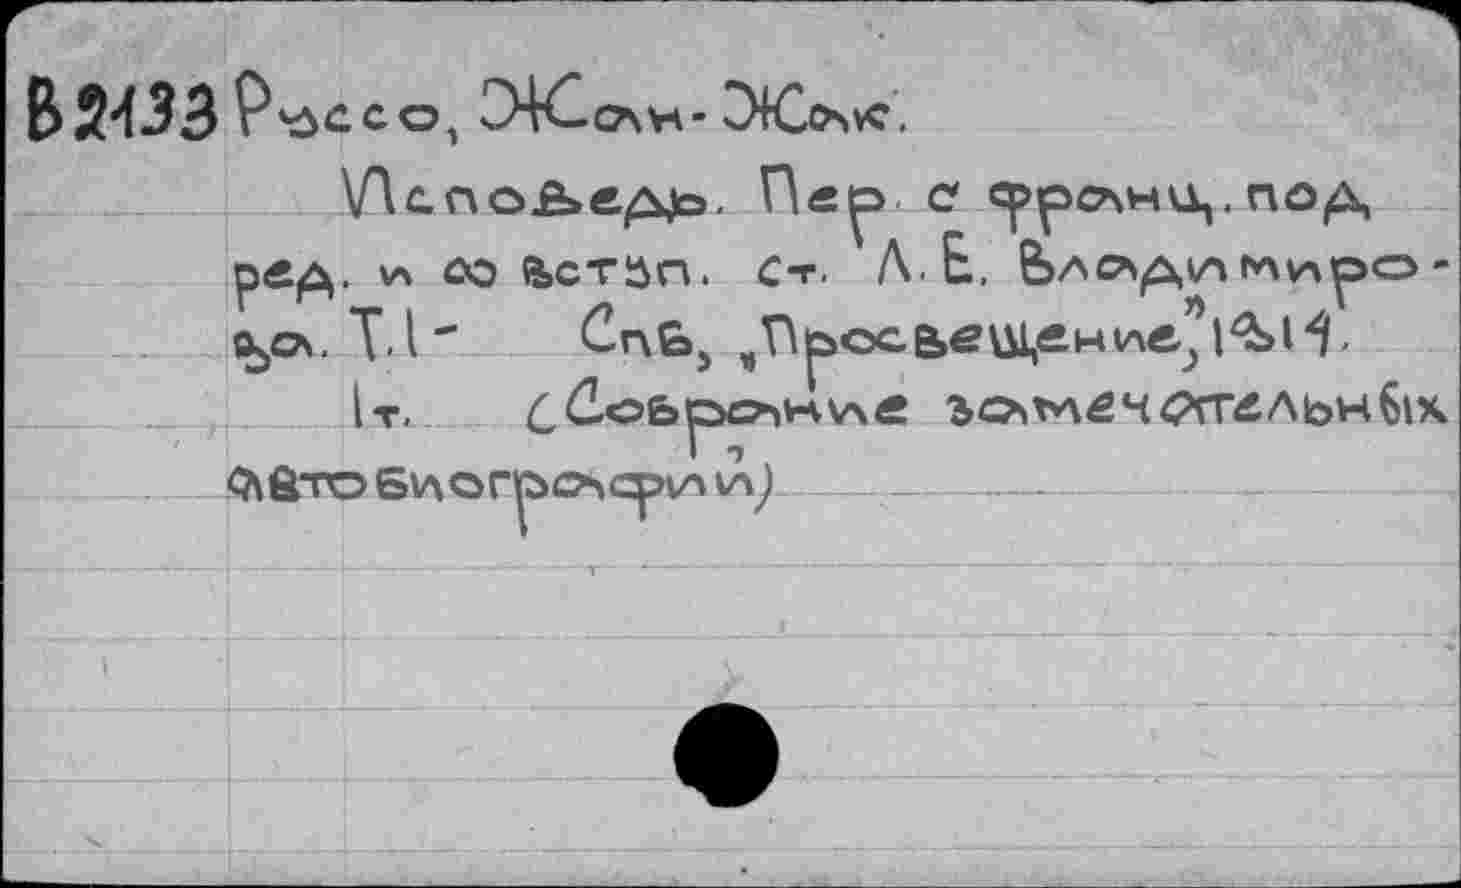 В 2133 Руссо, Жан-Жак.
Исповедь. Пер. с франц. под
ред. и со вступ. ст. Л.Е. Владимиро-
ва. Т.1- Спб, „Просвещение”,
1т. (Собрание замечательных
автобиографии)